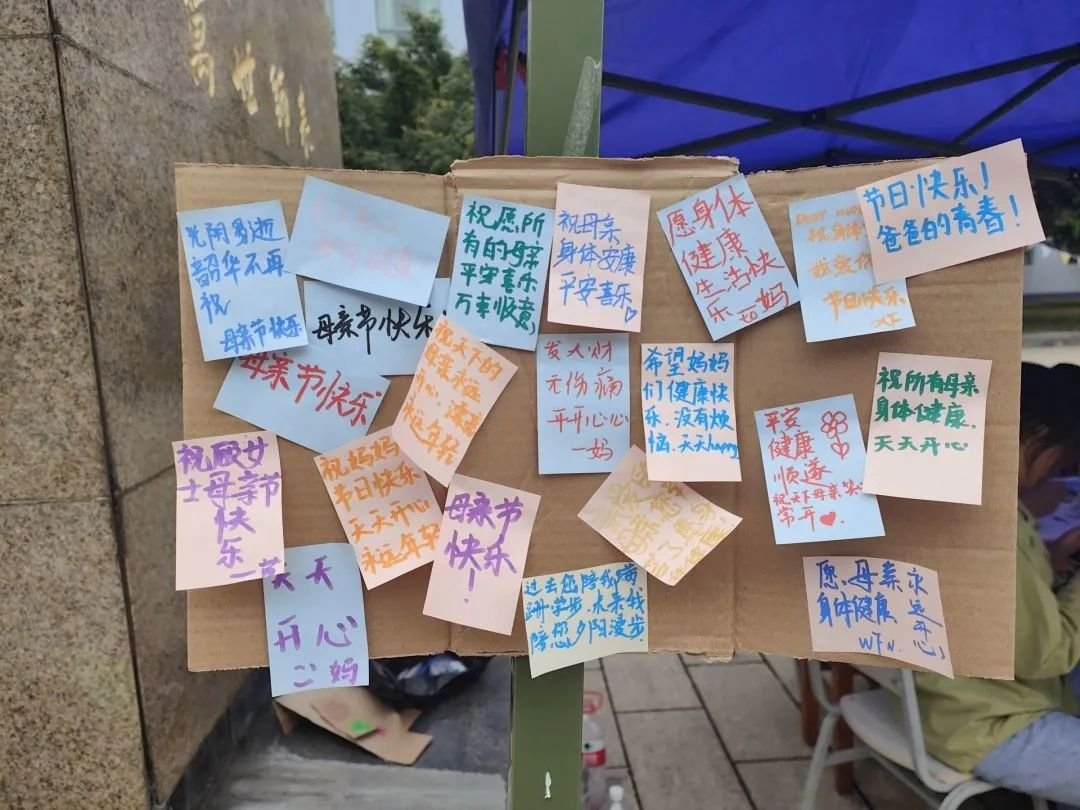 光阴易逝
韶华不再
祝
母亲节快乐
祝愿所
有的母亲
平安喜乐
万事顺意
祝母亲
身体安康
平安喜乐
愿身体
健康
生活快
乐 to妈
Dear
祝身体
我爱你
节日快乐
节日快乐!
爸爸的青春!
母亲节快乐
母亲节快乐
祝天下的
母亲永远
开心,
永远年轻
发大财
无伤痛
开开心心
一妈
希望妈妈
们健康快
乐,没有烦
恼,天天happy
平安
健康
顺遂
祝天下母亲笑
常开
祝所有母亲
身体健康,
天天开心
祝顾女
士母亲节
快
乐
祝妈妈
节日快乐
天天开心
永远年轻
母亲节
快乐
!
天天
开心
妈
过去您陪我蹒
跚学步,未来我
陪您夕阳漫步
愿母亲永
远
身体健康
开
心
WFN